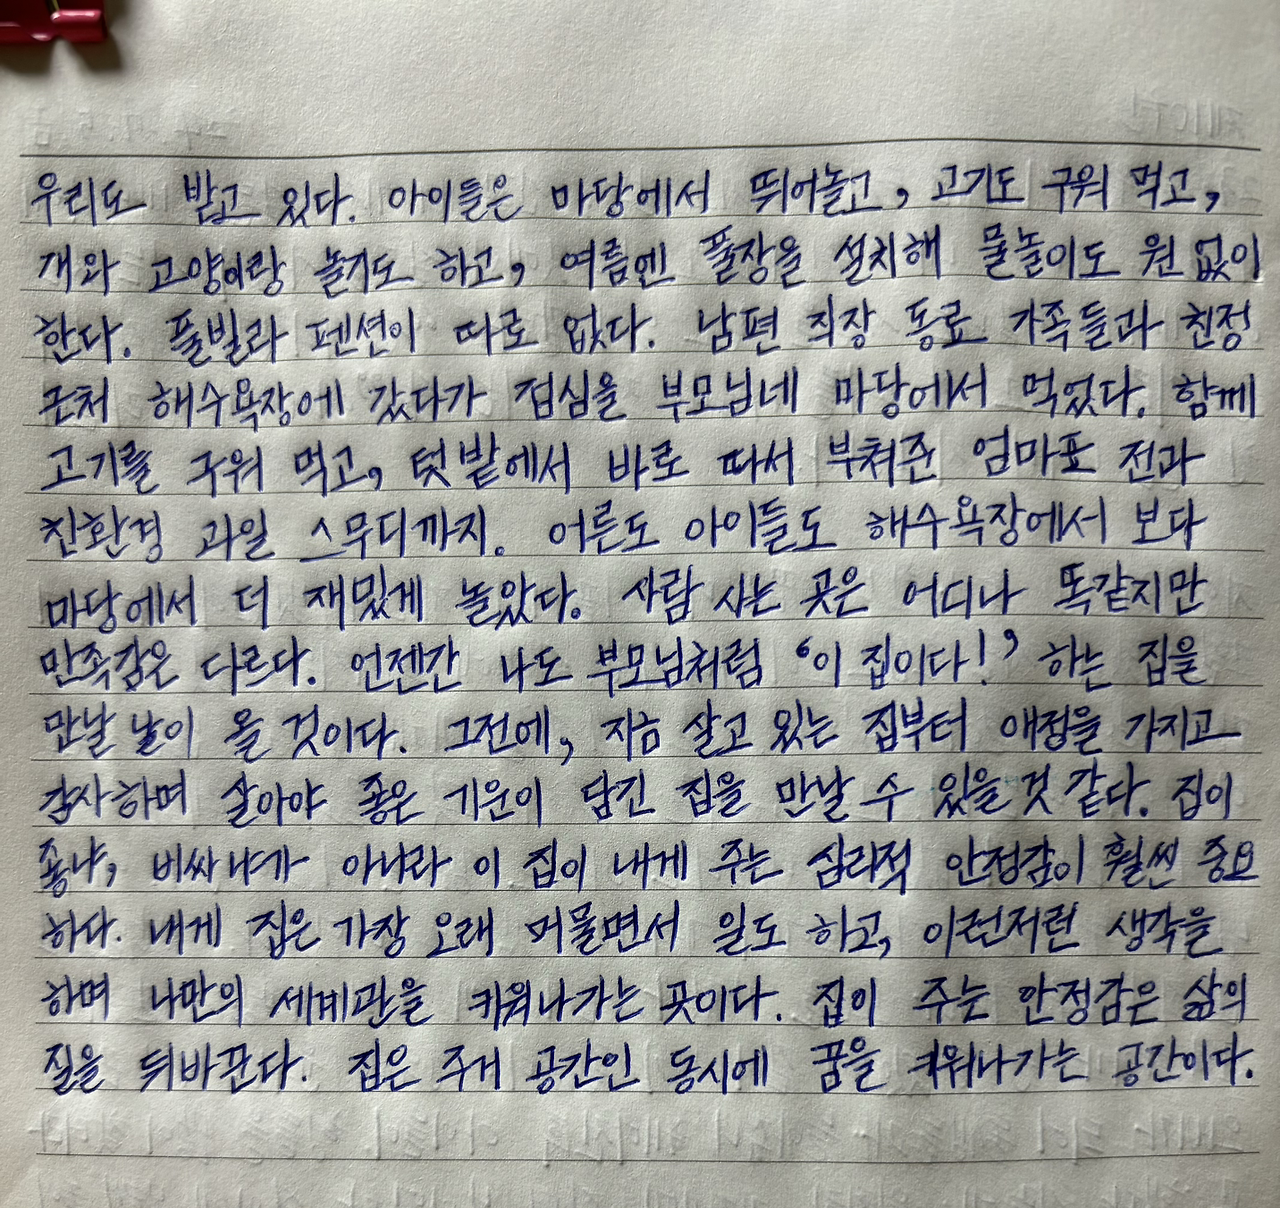 우리도 받고 있다. 아이들은 마당에서 뛰어놀고, 고기도 구워 먹고,
개와 고양이랑 놀기도 하고, 여름엔 풀장을 설치해 물놀이도 원 없이
한다. 풀빌라 펜션이 따로 없다. 남편 직장 동료 가족들과 친정
근처 해수욕장에 갔다가 점심을 부모님네 마당에서 먹었다. 함께
고기를 구워 먹고, 텃밭에서 바로 따서 부쳐준 엄마표 전과
친환경 과일 스무디까지. 어른도 아이들도 해수욕장에서 보다
마당에서 더 재밌게 놀았다. 사람 사는 곳은 어디나 똑같지만
만족감은 다르다. 언젠간 나도 부모님처럼 '이 집이다!' 하는 집을
만날 날이 올 것이다. 그전에, 지금 살고 있는 집부터 애정을 가지고
감사하며 살아야 좋은 기운이 담긴 집을 만날 수 있을 것 같다. 집이
좋냐, 비싸냐가 아니라 이 집이 내게 주는 심리적 안정감이 훨씬 중요
하다. 내게 집은 가장 오래 머물면서 일도 하고, 이런저런 생각을
하며 나만의 세계관을 키워나가는 곳이다. 집이 주는 안정감은 삶의
질을 뒤바꾼다. 집은 주거 공간인 동시에 꿈을 키워나가는 공간이다.